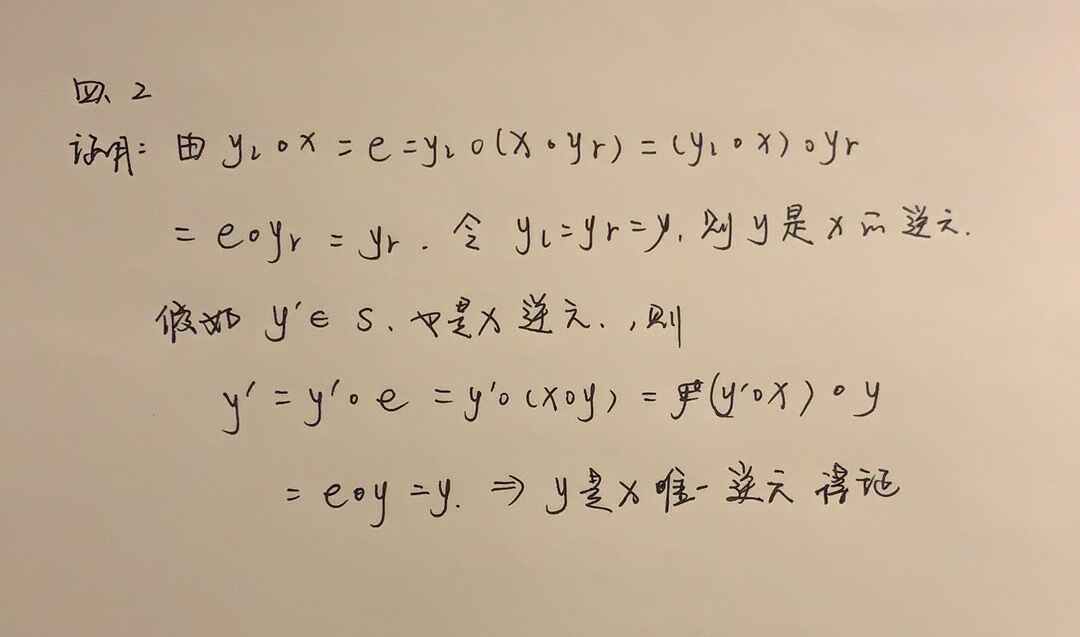 四、2
证明: 由 yₗ∘x = e = yₗ∘(x∘yᵣ) = (yₗ∘x)∘yᵣ
= e∘yᵣ = yᵣ. 令 yₗ=yᵣ=y, 则 y 是 x 的 逆元.
假如 y′∈ S、也是x 逆元., 则
y′ = y′∘e = y′∘(x∘y) = (y′∘x)∘y
= e∘y = y. ⇒ y是x 唯一 逆元 得证